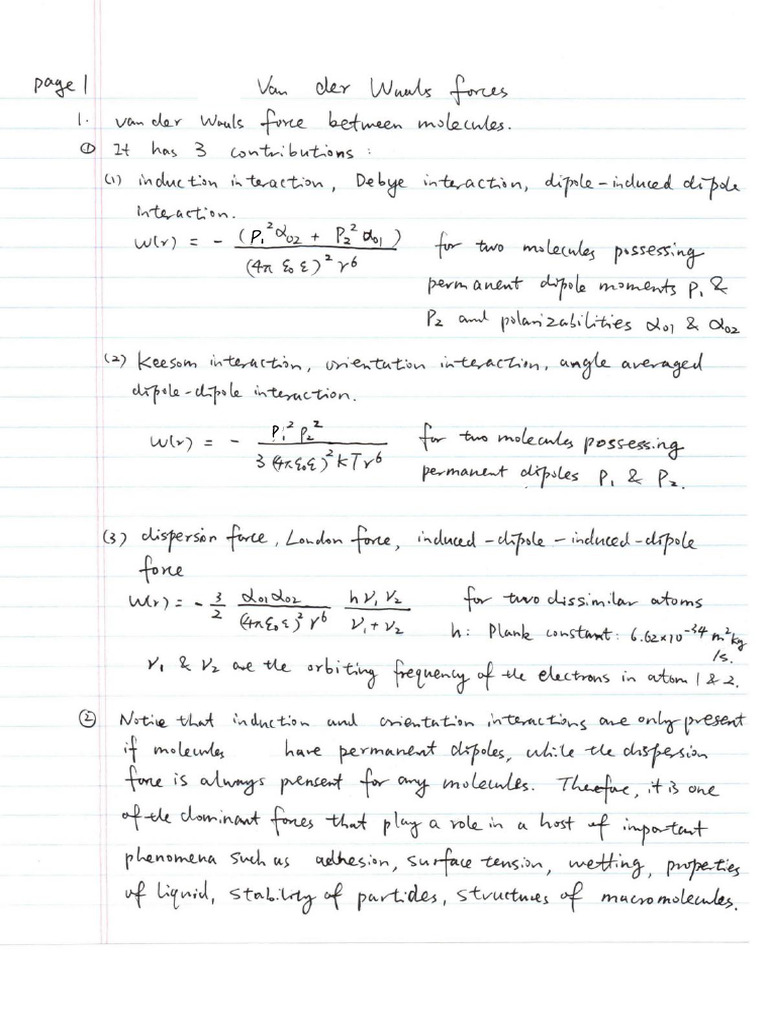 page 1 Van der Waals forces
1. van der Waals force between molecules.
① It has 3 contributions :
(1) induction interaction, Debye interaction, dipole-induced dipole
interaction.
W(r) = - (P₁²α₀₂ + P₂²α₀₁) / (4π ε₀ ε)² r⁶ for two molecules possessing
permanent dipole moments P₁ &
P₂ and polarizabilities α₀₁ & α₀₂
(2) Keesom interaction, orientation interaction, angle averaged
dipole-dipole interaction.
W(r) = - P₁² P₂² / 3 (4πε₀ε)² kT r⁶ for two molecules possessing
permanent dipoles P₁ & P₂.
(3) dispersion force, London force, induced-dipole-induced-dipole
force
W(r) = - 3/2 α₀₁α₀₂ / (4πε₀ε)² r⁶ h ν₁ ν₂ / ν₁ + ν₂ for two dissimilar atoms
h: Plank constant: 6.62×10⁻³⁴ m² kg
/s.
ν₁ & ν₂ are the orbiting frequency of the electrons in atom 1 & 2.
② Notice that induction and orientation interactions are only present
if molecules have permanent dipoles, while the dispersion
force is always present for any molecules. Therefore, it is one
of the dominant forces that play a role in a host of important
phenomena such as adhesion, surface tension, wetting, properties
of liquid, stability of particles, structures of macromolecules.